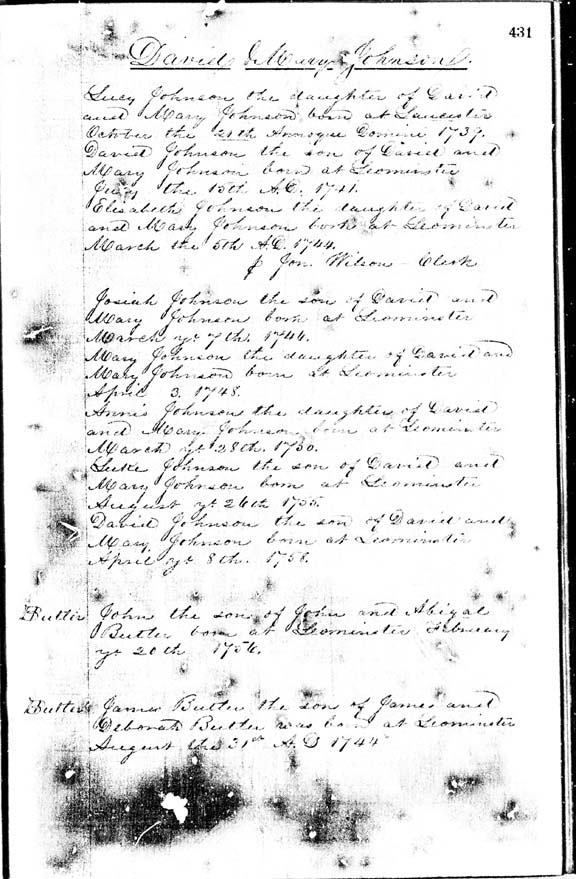 431
David & Mary Johnson.
Lucy Johnson the daughter of David
and Mary Johnson born at Lancester
October the 21th Annoque Domini 1739.
David Johnson the son of David and
Mary Johnson born at Leominster
the 15th A.D. 1741.
Elisabeth Johnson the daughter of David
and Mary Johnson born at Leominster
March the 5th A.D. 1744.
Jon. Wilson - Clerk
Josiah Johnson the son of David and
Mary Johnson born at Leominster
March yt 7th. 1746.
Mary Johnson the daughter of David and
Mary Johnson born at Leominster
April 3. 1748.
Annis Johnson the daughter of David
and Mary Johnson born at Leominster
March yt 28th. 1750.
Luke Johnson the son of David and
Mary Johnson born at Leominster
August yt 26th 1755.
David Johnson the son of David and
Mary Johnson born at Leominster
April yt 8th. 1758.
Butler John the son of John and Abigal
Butler born at Leominster February
yt 20th 1756.
Butler James Butler the son of James and
Deborah Butler was born at Leominster
August the 31st A.D 1744